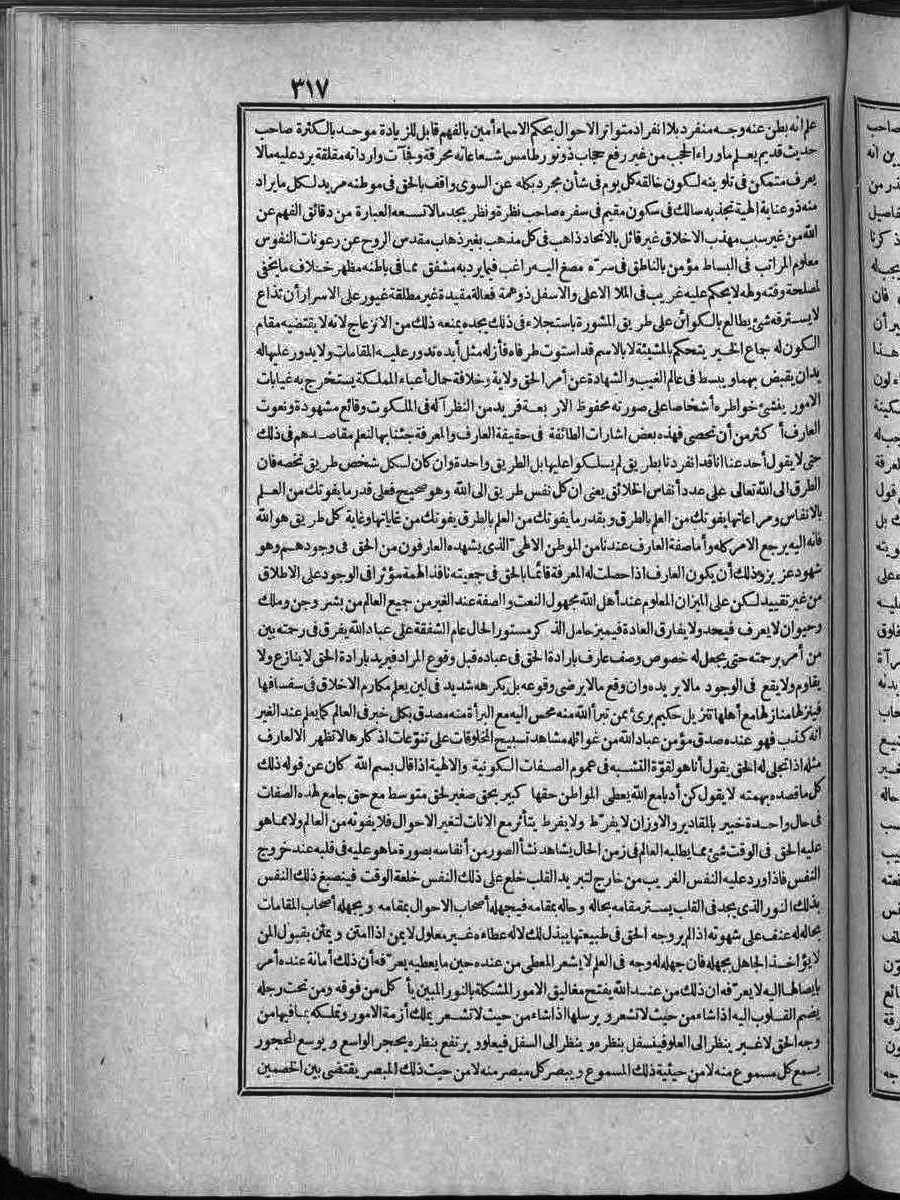 ٣١٧
علم انه بطن عنه وجه منفرد بلا انفراد متواتر الاحوال بحكم الاسماء أمين بالفهم قابل للزيادة موحد بالكثرة صاحب
حديث قديم يعلم ما وراء الحجب من غير رفع حجاب ذو نور طامس شعاعاته محرقة وفجآت وارداته مقلقة يرد عليه مالا
يعرف متمكن فى تلوينه لكون خالقه كل يوم فى شأن مجرد بكله عن السوى واقف بالحق فى موطنه مريد لكل ما يراد
منه ذو عناية الهية تجذبه سالك فى سكون مقيم فى سفره صاحب نظرة ونظر يجد مالا تسعه العبارة من دقائق الفهم عن
الله من غير سبب مهذب الاخلاق غير قائل بالاتحاد ذاهب فى كل مذهب بغير ذهاب مقدس الروح عن رعونات النفوس
معلوم المراتب فى البساط مؤمن بالناطق فى سرّه مصغ اليه راغب فيما يرد به مشفق مما فى باطنه مظهر خلاف ما يخفى
لمصلحة وقته ولهه لا يحكم عليه غريب فى الملا الاعلى والاسفل ذو همة فعالة مقيدة غير مطلقة غيور على الاسرار أن تذاع
لا يسترقه شئ يطالع بالكوائن على طريق المشورة باستجلاء فى ذلك يجده يمنعه ذلك من الانزعاج لانه لا يقتضيه مقام
الكون له جماع الخير يتحكم بالمشيئة لا بالاسم قد استوت طرفاه فأزله مثل أبده تدور عليه المقامات ولا يدور عليها له
يدان يقبض بهما ويبسط فى عالم الغيب والشهادة عن أمر الحق ولاية وخلافة حمال أعباء المملكة يستخرج به غيابات
الامور ينشئ خواطره أشخاصا على صورته محفوظ الاربعة فريد من النظر آله فى الملكوت وقائع مشهودة ونعوت
العارف أكثر من أن تحصى فهذه بعض اشارات الطائفة فى حقيقة العارف والمعرفة جئنا بها لنعلم مقاصدهم فى ذلك
حتى لا يقول أحد عنا انا قد انفردنا بطريق لم يسلكوا عليها بل الطريق واحدة وان كان لكل شخص طريق تخصه فان
الطرق الى الله تعالى على عدد أنفاس الخلائق يعنى ان كل نفس طريق الى الله وهو صحيح فعلى قدر ما يفوتك من العلم
بالانفاس ومراعاتها يفوتك من العلم بالطرق وبقدر ما يفوتك من العلم بالطرق يفوتك من غاياتها وغاية كل طريق هو الله
فانه اليه يرجع الامر كله وأما صفة العارف عندنا من الموطن الالهىّ الذى يشهده العارفون من الحق فى وجودهم وهو
شهود عزيز وذلك أن يكون العارف اذا حصلت له المعرفة قائما بالحق فى جمعيته نافذ الهمة مؤثرا فى الوجود على الاطلاق
من غير تقييد لكن على الميزان المعلوم عند أهل الله مجهول النعت والصفة عند الغير من جميع العالم من بشر وجن وملك
وحيوان لا يعرف فيحد ولا يفارق العادة فيميز خامل الذكر مستور الحال عام الشفقة على عباد الله يفرق فى رحمته بين
من أمر برحمته حتى يجعل له خصوص وصف عارف بارادة الحق فى عباده قبل وقوع المراد فيريد بارادة الحق لا ينازع ولا
يقاوم ولا يقع فى الوجود مالا يريده وان وقع مالا يرضى وقوعه بل يكرهه شديد فى لين يعلم مكارم الاخلاق فى سفسافها
فينزلها منازلها مع أهلها تنزيل حكيم برئ ممن تبرأ الله منه محسن اليه مع البرأة منه مصدق بكل خبر فى العالم كما يعلم عند الغير
انه كذب فهو عنده صدق مؤمن عباد الله من غوائله مشاهد تسبيح المخلوقات على تنوّعات اذكارها لا تظهر الا لعارف
مثله اذا تجلى له الحق يقول أنا هو لقوّة التشبه فى عموم الصفات الكونية والالهية اذا قال بسم الله كان عن قوله ذلك
كل ما قصده بهمته لا يقول كن أدبا مع الله يعطى المواطن حقها كبير بحق صغير لحق متوسط مع حق جامع لهذه الصفات
فى حال واحدة خبير بالمقادير والاوزان لا يفرّط ولا يفرط يتأثر مع الانات لتغير الاحوال فلا يفوته من العالم ولا مما هو
عليه الحق فى الوقت شئ مما يطلبه العالم فى زمن الحال يشاهد نشأ الصور من أنفاسه بصورة ما هو عليه فى قلبه عند خروج
النفس فاذا ورد عليه النفس الغريب من خارج لتبريد القلب خلع على ذلك النفس خلعة الوقت فينصبغ ذلك النفس
بذلك النور الذى يجد فى القلب يستر مقامه بحاله وحاله بمقامه فيجهله أصحاب الاحوال بمقامه ويجهله أصحاب المقامات
بحاله له عنف على شهوته اذا لم ير وجه الحق فى طبيعتها يبذل لك لا له عطاءه غير معلول لا يمن اذا امتن ويمتن بقبول المن
لا يؤاخذ الجاهل بجهله فان جهله له وجه فى العلم لا يشعر المعطى من عنده حين ما يعطيه يعرّفه أن ذلك أمانة عنده أمر
بايصالها اليه لا يعرّفه ان ذلك من عند الله يفتح مغاليق الامور المشكلة بالنور المبين يأكل من فوقه ومن تحت رجله
يضم القلوب اليه اذا شاء من حيث لا تشعر ويرسلها اذا شاء من حيث لا تشعر يملك أزمة الامور وتملكه بما فيها من
وجه الحق لا غير ينظر الى العلو فيسفل بنظره وينظر الى السفل فيعلو ويرتفع بنظره يحجر الواسع ويوسع المحجور
يسمع كل مسموع منه لا من حيثية ذلك المسموع ويبصر كل مبصر منه لا من حيث ذلك المبصر يقتضى بين الخصمين